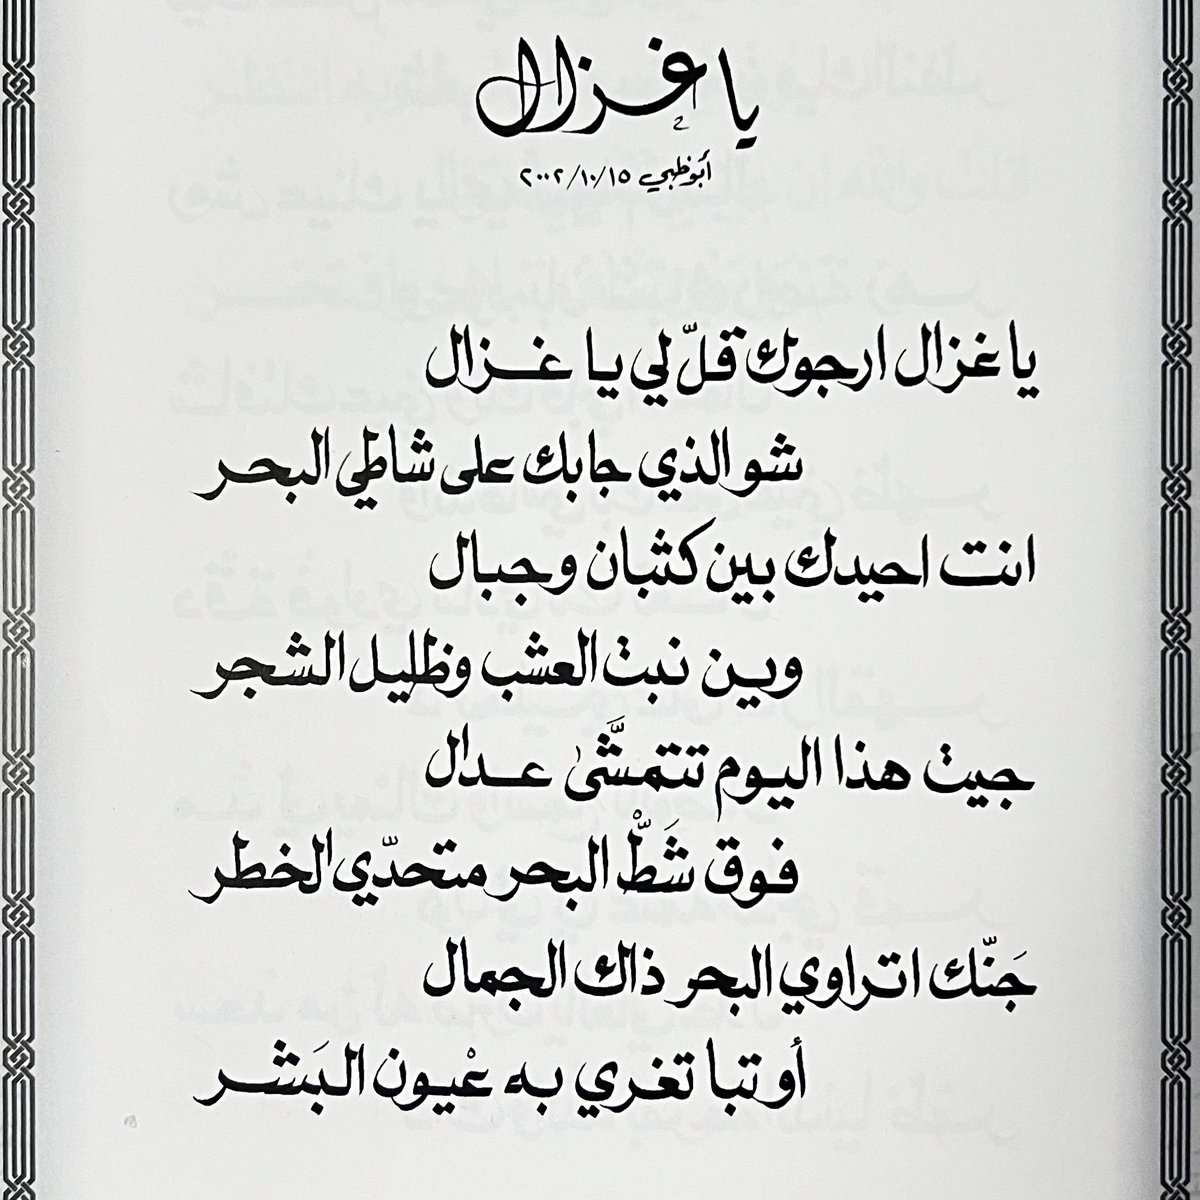 يا غزال
أبوظبي ٢٠٠٢/١٠/١٥
يا غزال ارجوك قلّ لي يا غـزال
شو الذي جابك على شاطي البحر
انت احيدك بين كثبان وجبال
وين نبت العشب وظليل الشجر
جيت هذا اليوم تتمشَّى عدال
فوق شَطّْ البحر متحدّي الخطر
جَنّك اتراوي البحر ذاك الجمال
أو تبا تغري به عْيون البَشر